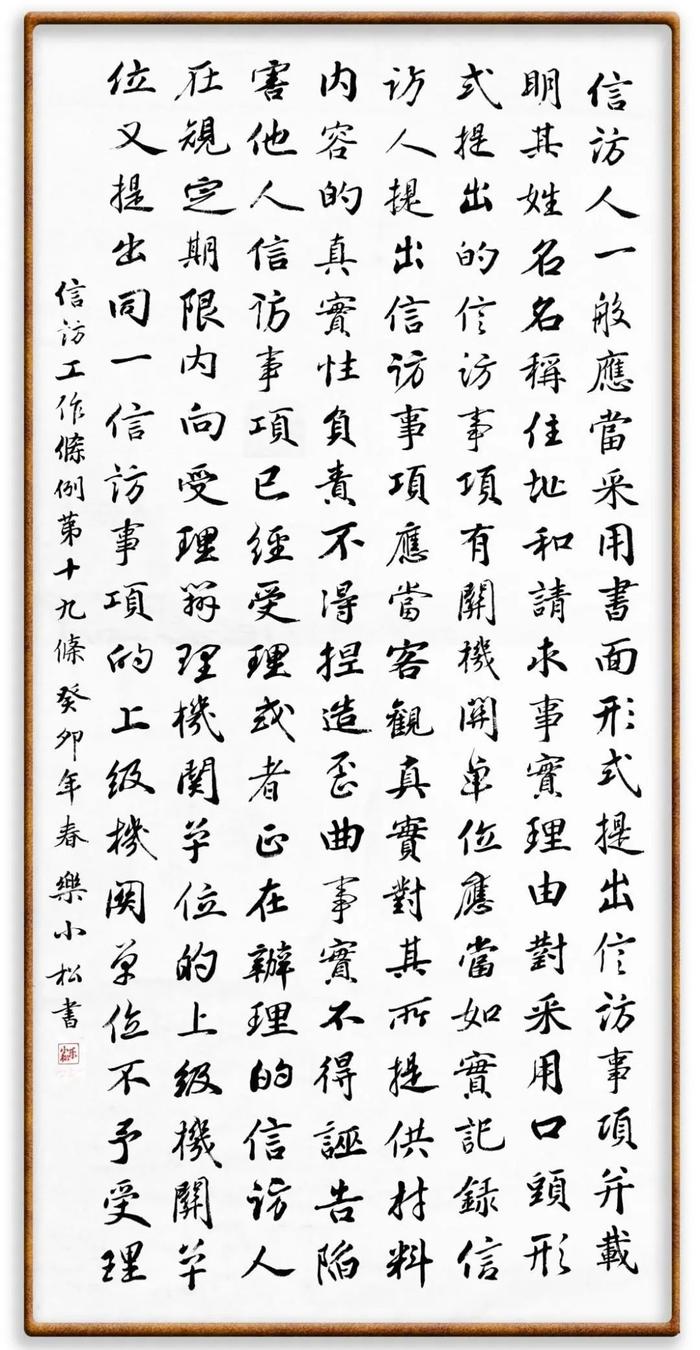 信訪人一般應當采用書面形式提出信訪事項并載
明其姓名名稱住址和請求事實理由對采用口頭形
式提出的信訪事項有關機關單位應當如實記録信
訪人提出信訪事項應當客觀真實對其所提供材料
内容的真實性負責不得捏造歪曲事實不得誣告陷
害他人信訪事項已經受理或者正在辦理的信訪人
在規定期限内向受理辦理機関單位的上級機關單
位又提出同一信訪事項的上級機関單位不予受理
信訪工作條例第十九條癸卯年春樂小松書
乐小松